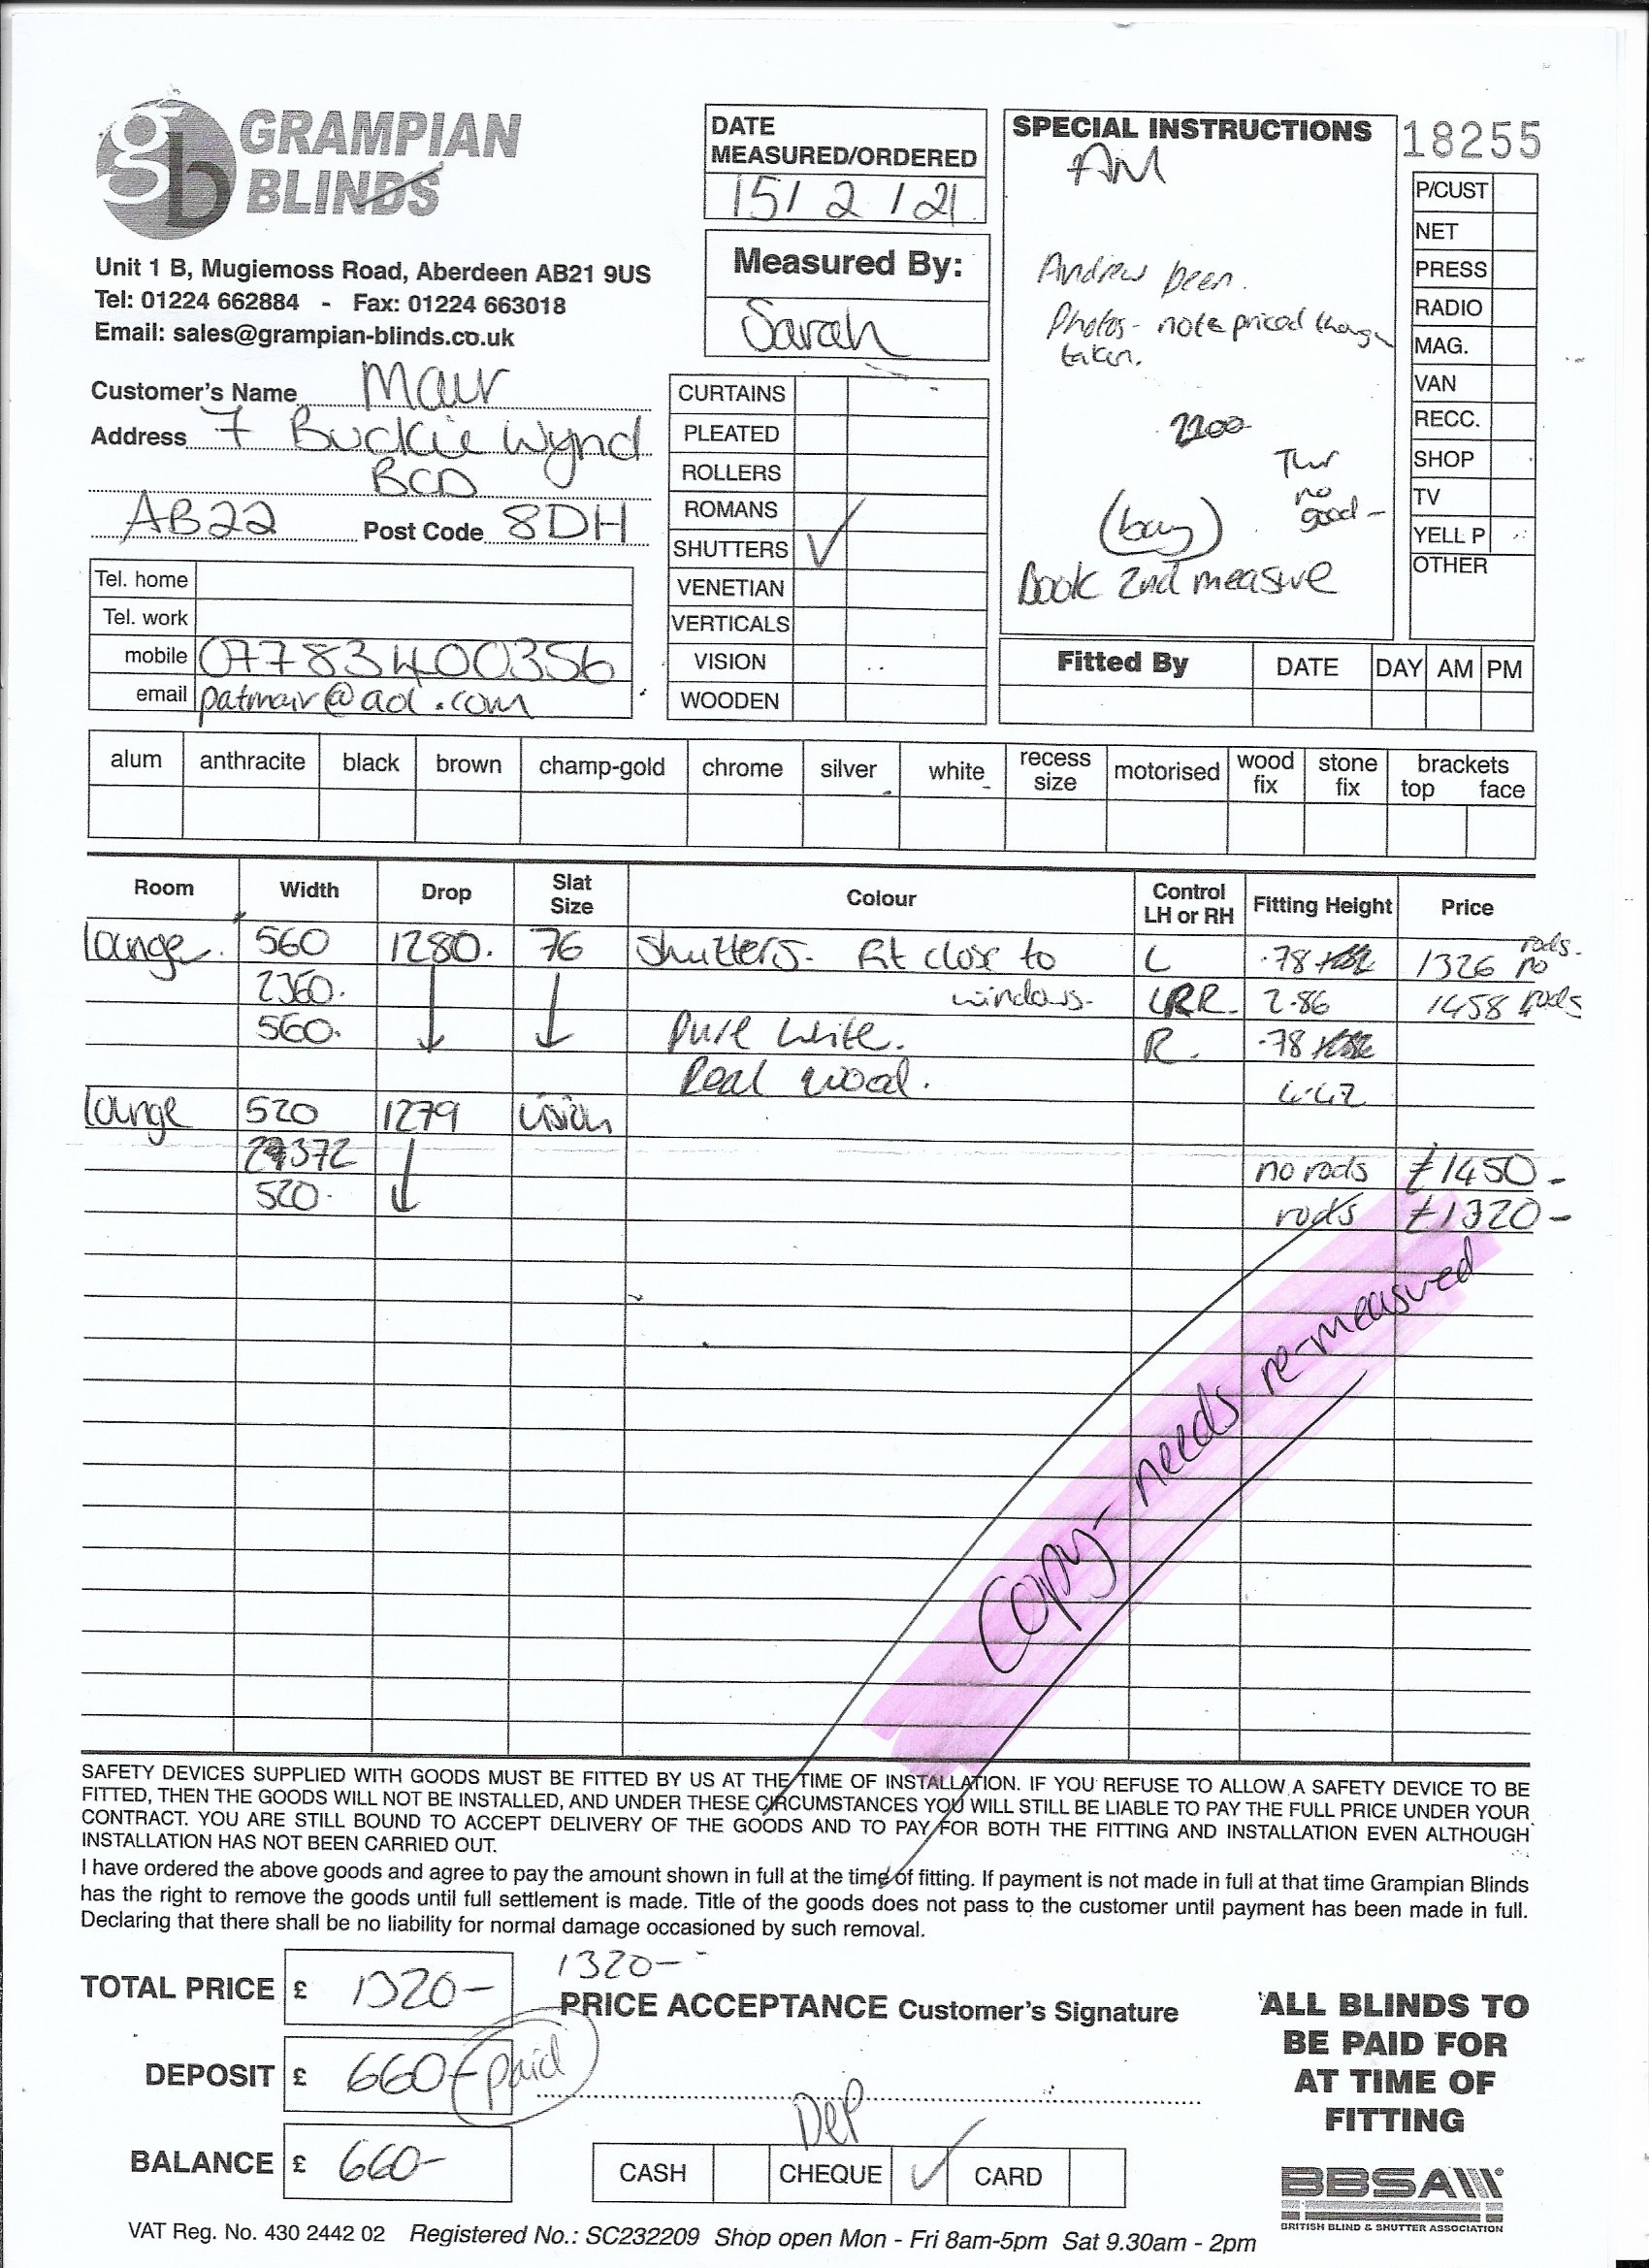 GRAMPIAN
BLINDS
Unit 1 B, Mugiemoss Road, Aberdeen AB21 9US
Tel: 01224 662884 - Fax: 01224 663018
Email: sales@grampian-blinds.co.uk
Customer's Name Mair
Address 7 Buckie Wynd
BCD
AB22 Post Code 8DH
Tel. home
Tel. work
mobile 07783400356
email patmair@aol.com
DATE
MEASURED/ORDERED
15/2/21
Measured By:
Sarah
CURTAINS
PLEATED
ROLLERS
ROMANS
SHUTTERS ✓
VENETIAN
VERTICALS
VISION
WOODEN
SPECIAL INSTRUCTIONS
AM
Andrew been.
Photos - note priced though
taken.
2200
Thur
no
good -
(bay)
Book 2nd measure
18255
P/CUST
NET
PRESS
RADIO
MAG.
VAN
RECC.
SHOP
TV
YELL P
OTHER
Fitted By DATE DAY AM PM
alum anthracite black brown champ-gold chrome silver white recess size motorised wood fix stone fix brackets top face
Room Width Drop Slat Size Colour Control LH or RH Fitting Height Price
lounge. 560 1280. 76 Shutters. Fit close to L .78 1326 no rods.
2360. windows. LRR. 2.86 1458 rods
560. Pure white. R. .78
Real wood. 4.42
lounge 520 1279 vision
372
520. no rods £1450-
rods £1320-
Copy - needs re-measured
SAFETY DEVICES SUPPLIED WITH GOODS MUST BE FITTED BY US AT THE TIME OF INSTALLATION. IF YOU REFUSE TO ALLOW A SAFETY DEVICE TO BE
FITTED, THEN THE GOODS WILL NOT BE INSTALLED, AND UNDER THESE CIRCUMSTANCES YOU WILL STILL BE LIABLE TO PAY THE FULL PRICE UNDER YOUR
CONTRACT. YOU ARE STILL BOUND TO ACCEPT DELIVERY OF THE GOODS AND TO PAY FOR BOTH THE FITTING AND INSTALLATION EVEN ALTHOUGH
INSTALLATION HAS NOT BEEN CARRIED OUT.
I have ordered the above goods and agree to pay the amount shown in full at the time of fitting. If payment is not made in full at that time Grampian Blinds
has the right to remove the goods until full settlement is made. Title of the goods does not pass to the customer until payment has been made in full.
Declaring that there shall be no liability for normal damage occasioned by such removal.
TOTAL PRICE £ 1320-
1320-
PRICE ACCEPTANCE Customer's Signature
DEPOSIT £ 660- paid
BALANCE £ 660-
Dep
CASH CHEQUE ✓ CARD
ALL BLINDS TO
BE PAID FOR
AT TIME OF
FITTING
BBSA
BRITISH BLIND & SHUTTER ASSOCIATION
VAT Reg. No. 430 2442 02 Registered No.: SC232209 Shop open Mon - Fri 8am-5pm Sat 9.30am - 2pm